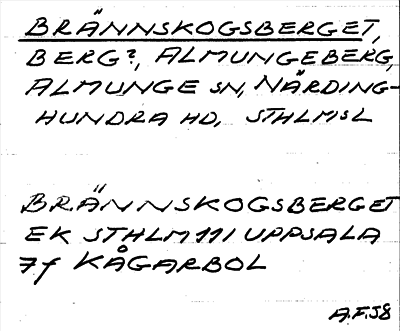 BRÄNNSKOGSBERGET,
BERG?, ALMUNGEBERG,
ALMUNGE SN, NÄRDING-
HUNDRA HD, STHLMSL
BRÄNNSKOGSBERGET
EK STHLM 111 UPPSALA
7f KÅGARBOL
A.F.58